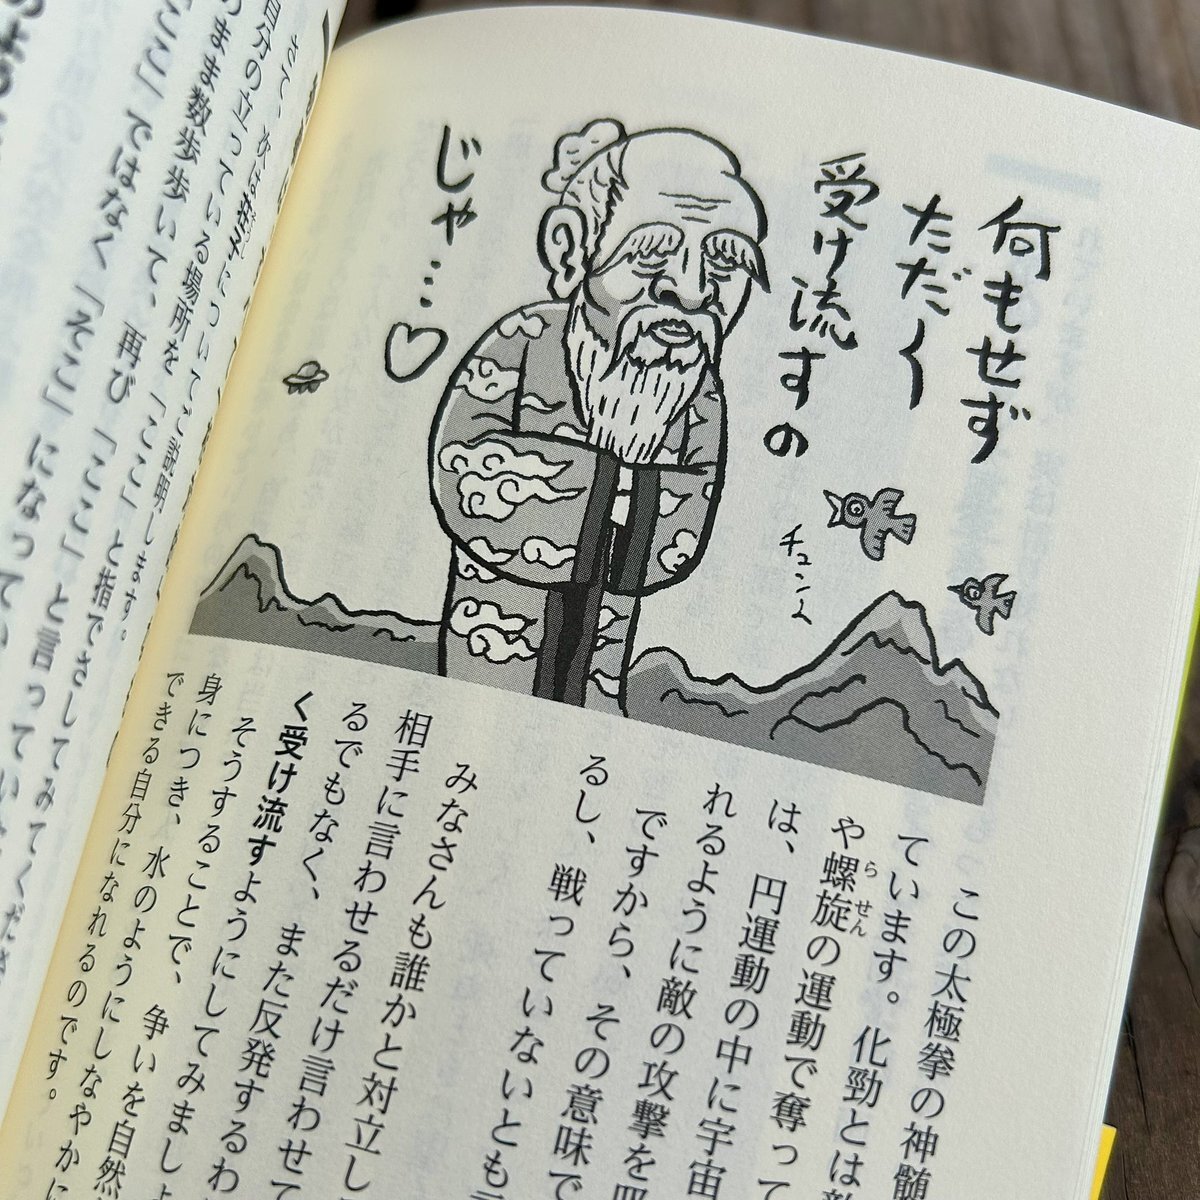 何もせず
ただ〜
受け流すの
じゃ…♡
チュンチュン
この太極拳の神髄
ています。化勁とは敵
や螺旋の運動で奪って
らせん
は、円運動の中に宇宙
れるように敵の攻撃を
ですから、その意味で
るし、戦っていないとも
みなさんも誰かと対立し
相手に言わせるだけ言わせて
るでもなく、また反発するわ
く受け流すようにしてみましょ
そうすることで、争いを自然
身につき、水のようにしなやかに
できる自分になれるのです。
自分の立っている場所を「ここ」と
のまま数歩歩いて、再び「ここ」と指でさしてみてくださ
ここ」ではなく「そこ」になってい